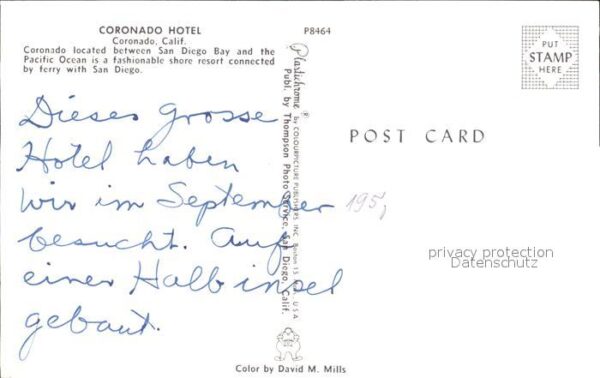 CORONADO HOTEL
Coronado, Calif.
Coronado located between San Diego Bay and the
Pacific Ocean is a fashionable shore resort connected
by ferry with San Diego.
P8464
PUT
STAMP
HERE
Plastichrome ®
by COLOURPICTURE PUBLISHERS, INC. Boston 15, U.S.A.
Publ. by Thompson Photo Service, San Diego, Calif.
POST CARD
Dieses grosse
Hotel haben
wir im September 195,
besucht. Auf
einer Halbinsel
gebaut.
privacy protection
Datenschutz
Color by David M. Mills